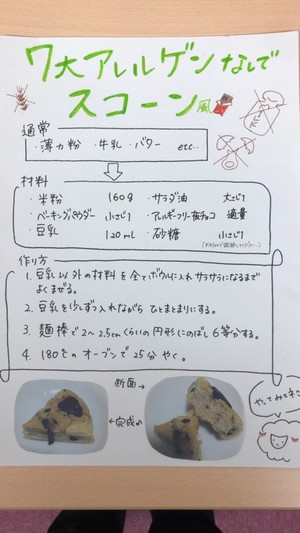 7大アレルゲンなしで
スコーン風
通常
・薄力粉 ・牛乳 ・バター etc...
材料
・米粉 160g ・サラダ油 大さじ1
・ベーキングパウダー 小さじ1 ・アレルギーフリー板チョコ 適量
・豆乳 120mL ・砂糖 小さじ1
作り方
1. 豆乳以外の材料を全てボウルに入れサラサラになるまで
よくまぜる。
2. 豆乳を少しずつ入れながら ひとまとまりにする。
3. 麺棒で2〜2.5cmくらいの円形にのばし6等分する。
4. 180℃のオーブンで25分やく。
断面→
←完成♪
やってみてネ